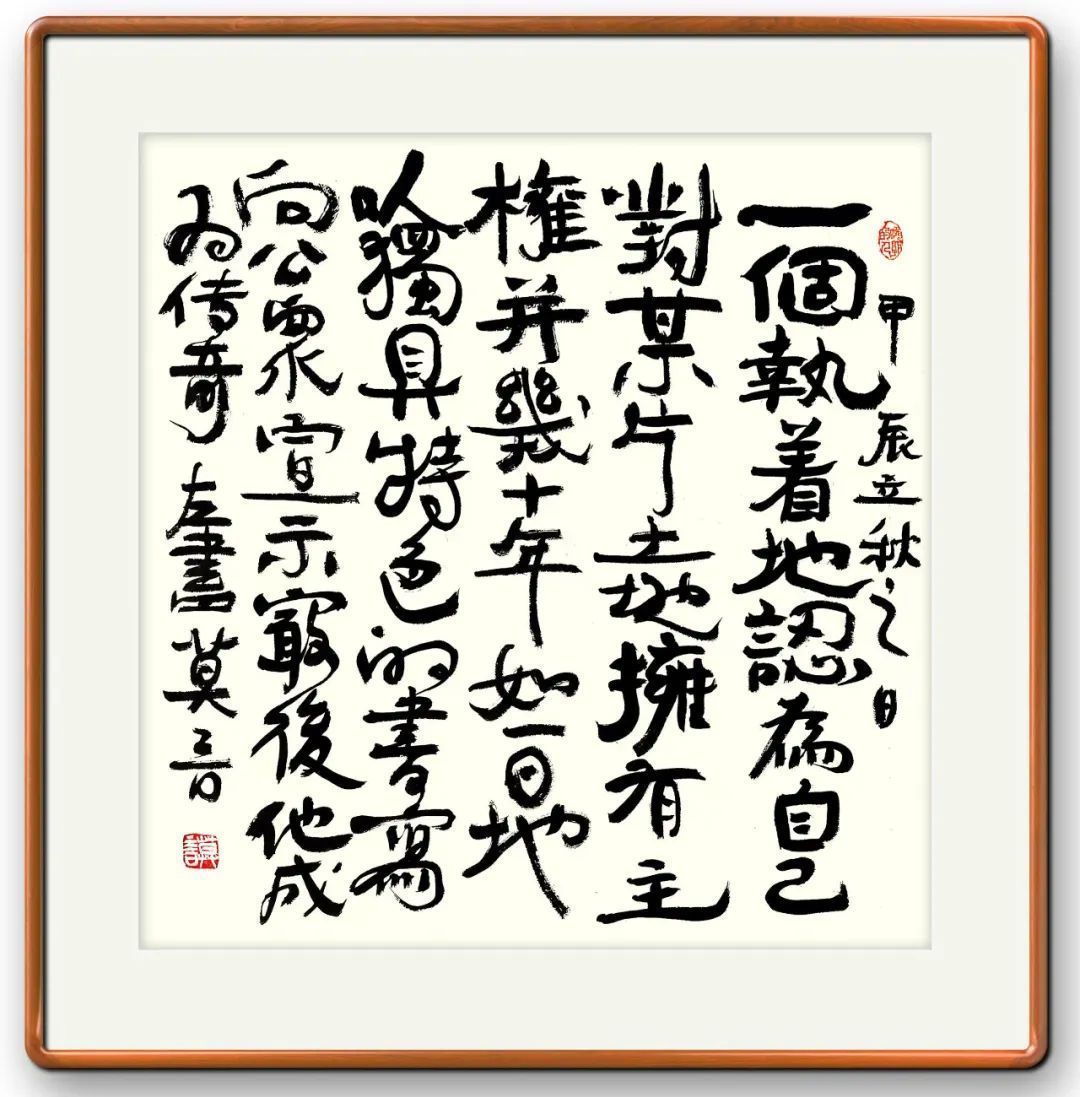 甲辰立秋之日
一個執着地認為自己
對某片土地擁有主
權并幾十年如一日地
以獨具特色的書寫
向公眾宣示最後他成
為传奇 左書莫言
莫言